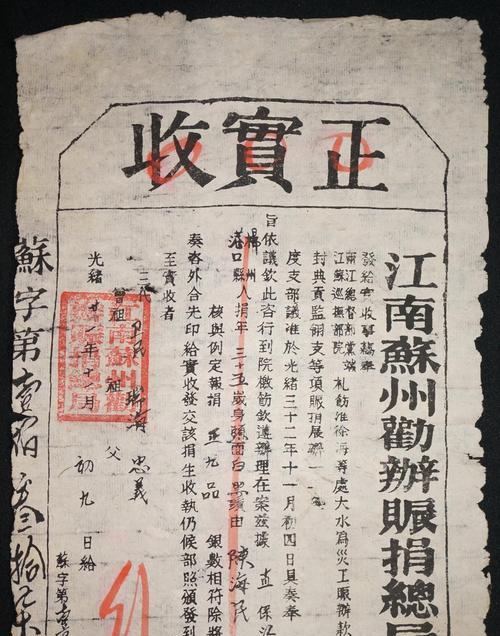 正實收
江南蘇州勸辦賑捐總局
發給實收事竊奉
南洋總督部堂端
江蘇巡撫部院
札飭淮徐海等處大水為災工賑辦款
封典貢監翎支等項賑捐展辦一
度支部議准於光緒三十二年十一月初四日具奏奉
旨依議欽此咨行到院檄飭欽遵辦理在案茲據
直
揚州
縣人捐年三十五歲身面白
鬚由
陳海民
核與例定報捐
正九品
銀數相符除將
奏咨外合先印給實收發交該捐生收執仍候部照頒發到
至實收者
三代
曾祖
祖
父
忠義
光緒
年十一月
初九日給
蘇字第
蘇字第壹佰叁拾